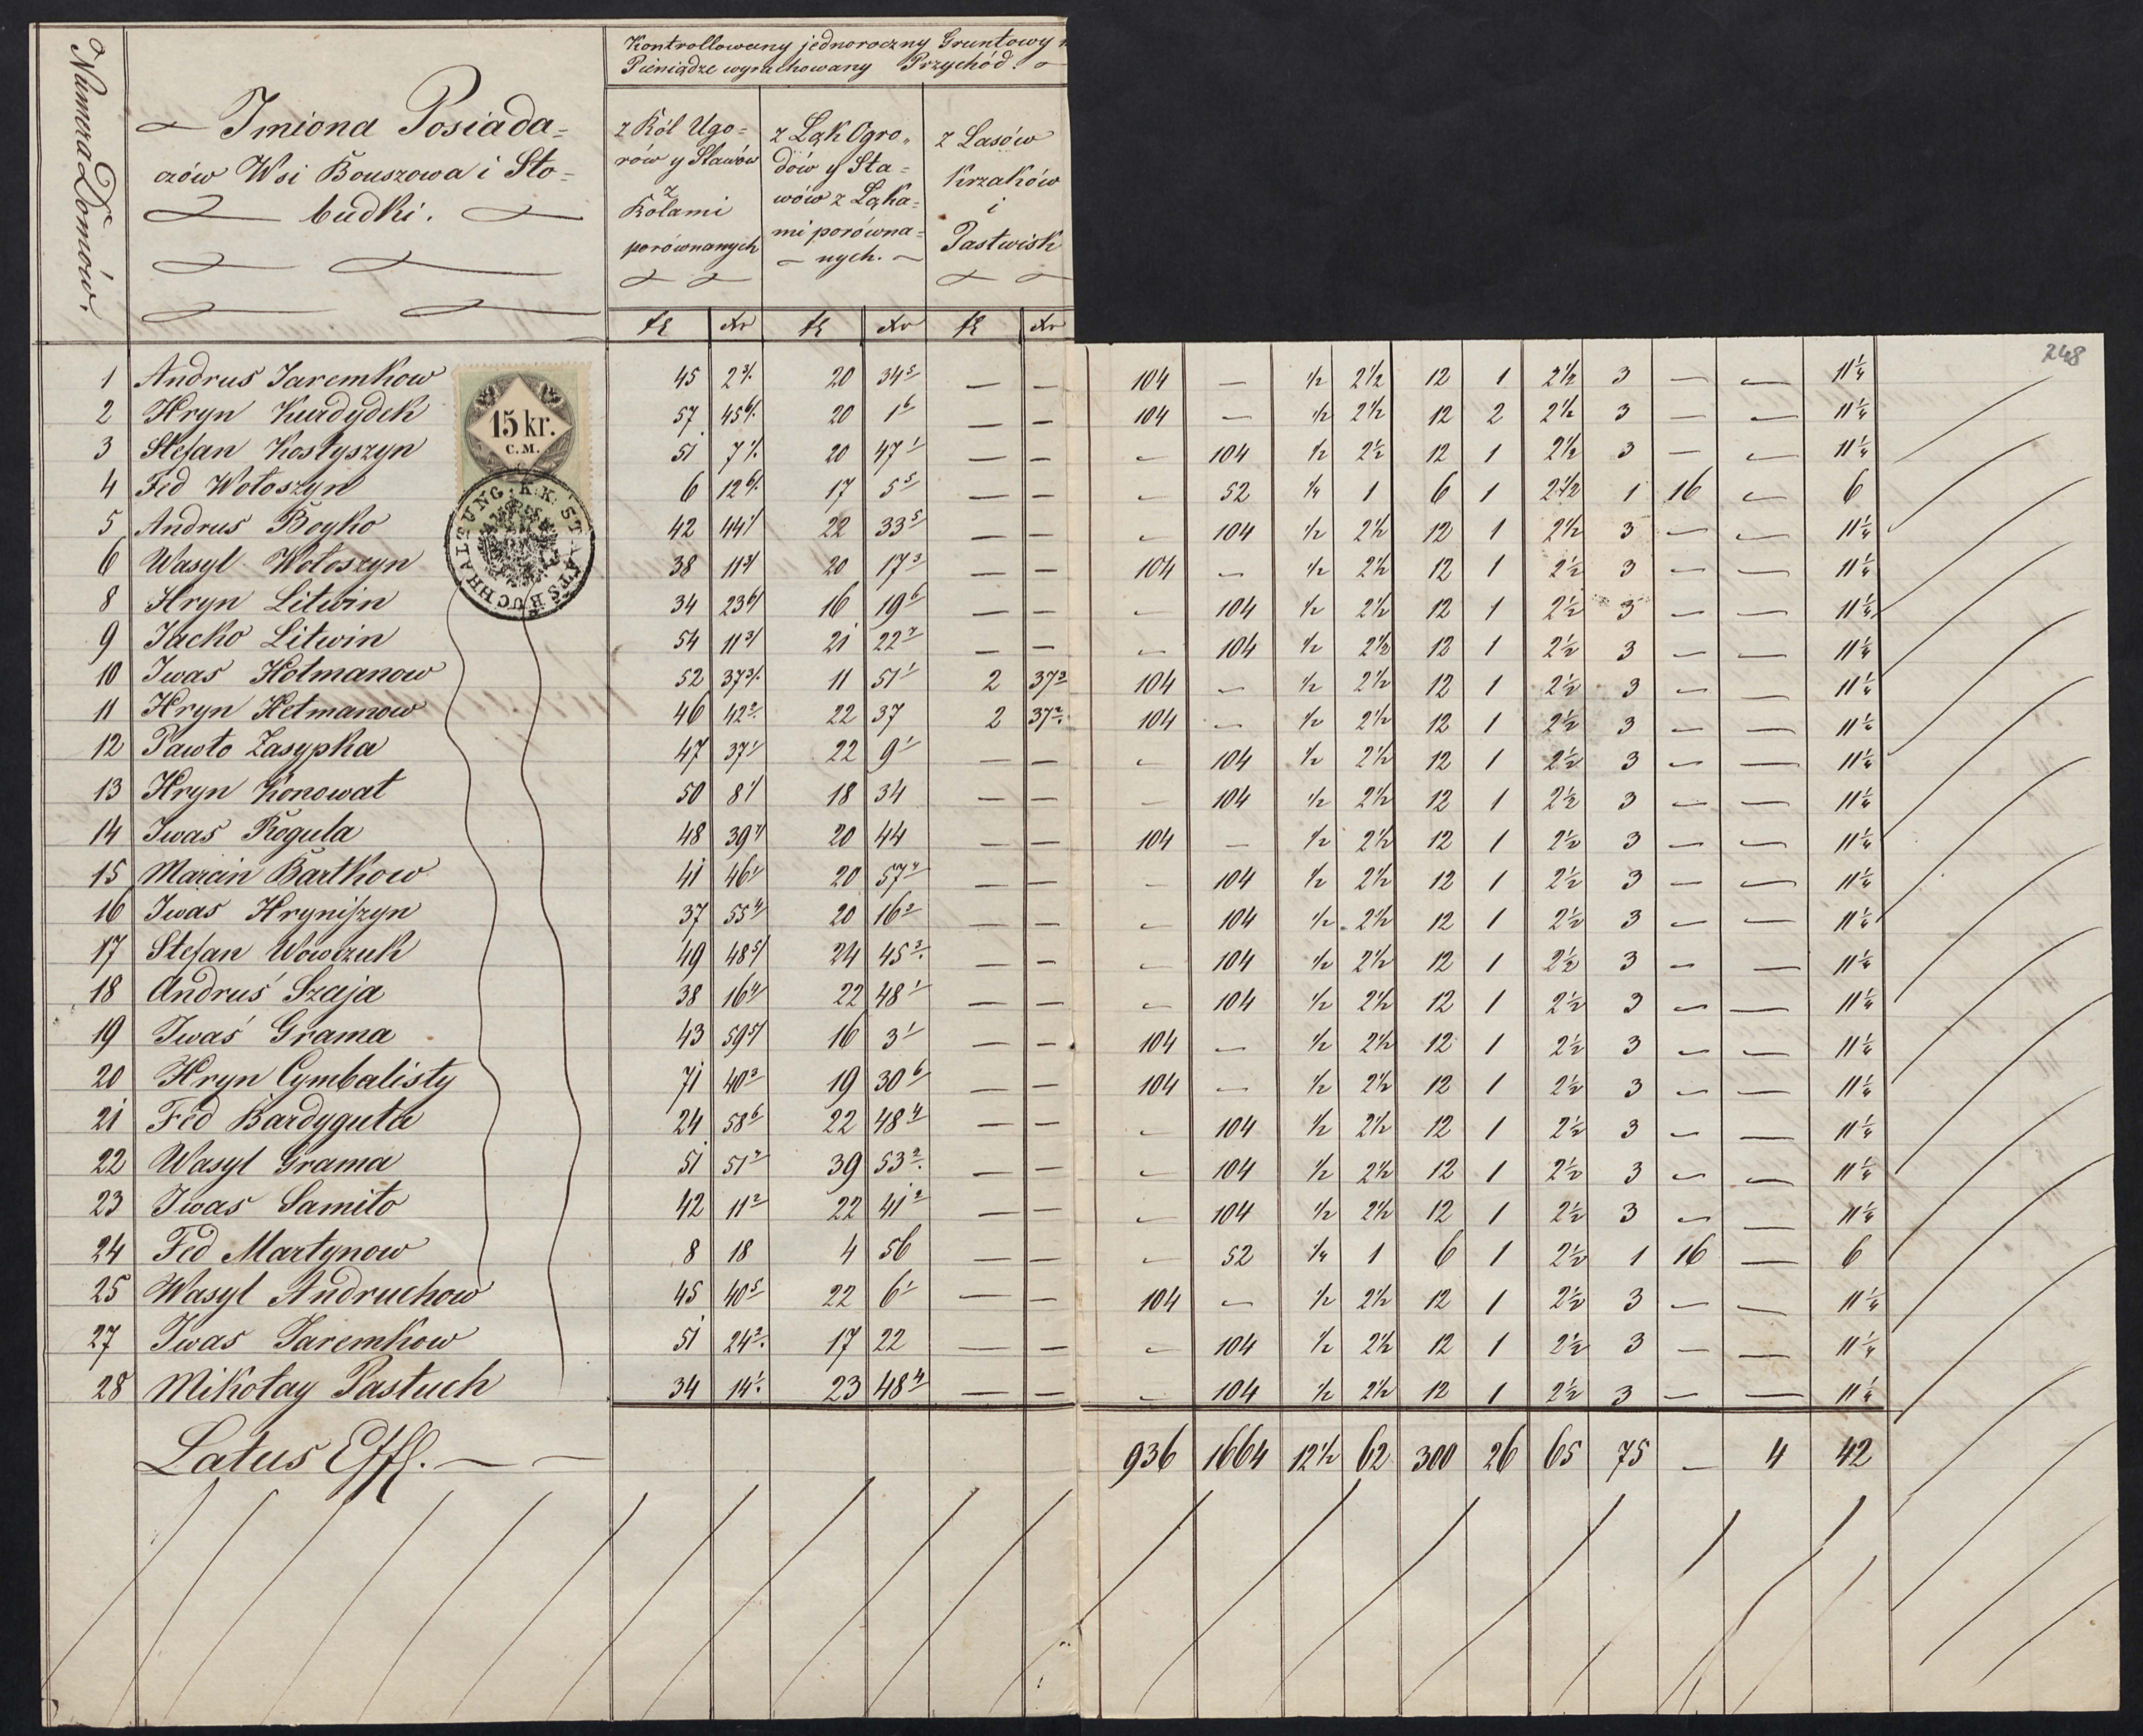 Numera Domów.
Imiona Posiada=
czów Wsi Bouszowa i Sło=
budki.
Kontrollowany jednoroczny Gruntowy
Pieniądze wyrachowany Przychód.
z Ról Ugo=
rów y Stawów
z
Rolami
porównanych
z Łąk Ogro„
dów y Sta=
wów z Łąka=
mi porówna=
nych.
z Lasów
Krzaków
i
Pastwisk
fl xr fl xr fl xr
248
15 kr.
C.M.
K.K. STAATSBUCHHALTUNG
1 Andrus Jaremkow 45 2 3/. 20 34 5 — — 104 — ½ 2½ 12 1 2½ 3 — — 11¼
2 Hryn Kurdydek 57 45 6/. 20 1 6 — — 104 — ½ 2½ 12 2 2½ 3 — — 11¼
3 Stefan Kostyszyn 51 7 1/. 20 47 1 — — — 104 ½ 2½ 12 1 2½ 3 — — 11¼
4 Fed Wołoszyn 6 12 6/. 17 5 5 — — — 52 ¼ 1 6 1 2½ 1 16 — 6
5 Andrus Boyko 42 44 1/ 22 33 5 — — — 104 ½ 2½ 12 1 2½ 3 — — 11¼
6 Wasyl Wołoszyn 38 11 3/ 20 17 3 — — 104 — ½ 2½ 12 1 2½ 3 — — 11¼
8 Hryn Litwin 34 23 6/ 16 19 6 — — — 104 ½ 2½ 12 1 2½ 3 — — 11¼
9 Jacko Litwin 54 11 3/ 21 22 2 — — — 104 ½ 2½ 12 1 2½ 3 — — 11¼
10 Iwas Hotmanow 52 37 3/. 11 51 1 2 37 2 104 — ½ 2½ 12 1 2½ 3 — — 11¼
11 Hryn Hetmanow 46 42 2. 22 37 2 37 2. 104 — ½ 2½ 12 1 2½ 3 — — 11¼
12 Pawło Zasypka 47 37 1/ 22 9 1 — — — 104 ½ 2½ 12 1 2½ 3 — — 11¼
13 Hryn Konowat 50 8 1/ 18 34 — — — 104 ½ 2½ 12 1 2½ 3 — — 11¼
14 Iwas Rogula 48 39 4/ 20 44 — — 104 — ½ 2½ 12 1 2½ 3 — — 11¼
15 Marcin Bartkow 41 46 1/ 20 57 4 — — — 104 ½ 2½ 12 1 2½ 3 — — 11¼
16 Iwas Hryniszyn 37 55 4/ 20 16 2 — — — 104 ½ 2½ 12 1 2½ 3 — — 11¼
17 Stefan Wowczuk 49 48 5/ 24 45 3. — — — 104 ½ 2½ 12 1 2½ 3 — — 11¼
18 Andruś Szaja 38 16 4/ 22 48 1 — — — 104 ½ 2½ 12 1 2½ 3 — — 11¼
19 Iwaś Grama 43 59 5/ 16 3 1 — — 104 — ½ 2½ 12 1 2½ 3 — — 11¼
20 Hryn Cymbalisty 71 40 2 19 30 6 — — 104 — ½ 2½ 12 1 2½ 3 — — 11¼
21 Fed Bardyguła 24 58 6 22 48 4 — — — 104 ½ 2½ 12 1 2½ 3 — — 11¼
22 Wasyl Grama 51 51 2 39 53 2. — — — 104 ½ 2½ 12 1 2½ 3 — — 11¼
23 Iwas Samiło 42 11 2 22 41 2 — — — 104 ½ 2½ 12 1 2½ 3 — — 11¼
24 Fed Martynow 8 18 4 56 — — — 52 ¼ 1 6 1 2½ 1 16 — 6
25 Wasyl Andruchow 45 40 5 22 6 1 — — 104 — ½ 2½ 12 1 2½ 3 — — 11¼
27 Iwas Jaremkow 51 24 2. 17 22 — — — 104 ½ 2½ 12 1 2½ 3 — — 11¼
28 Mikołay Pastuch 34 14 1. 23 48 4 — — — 104 ½ 2½ 12 1 2½ 3 — — 11¼
Latus Effl. — — 936 1664 12½ 62 300 26 65 75 — 4 42